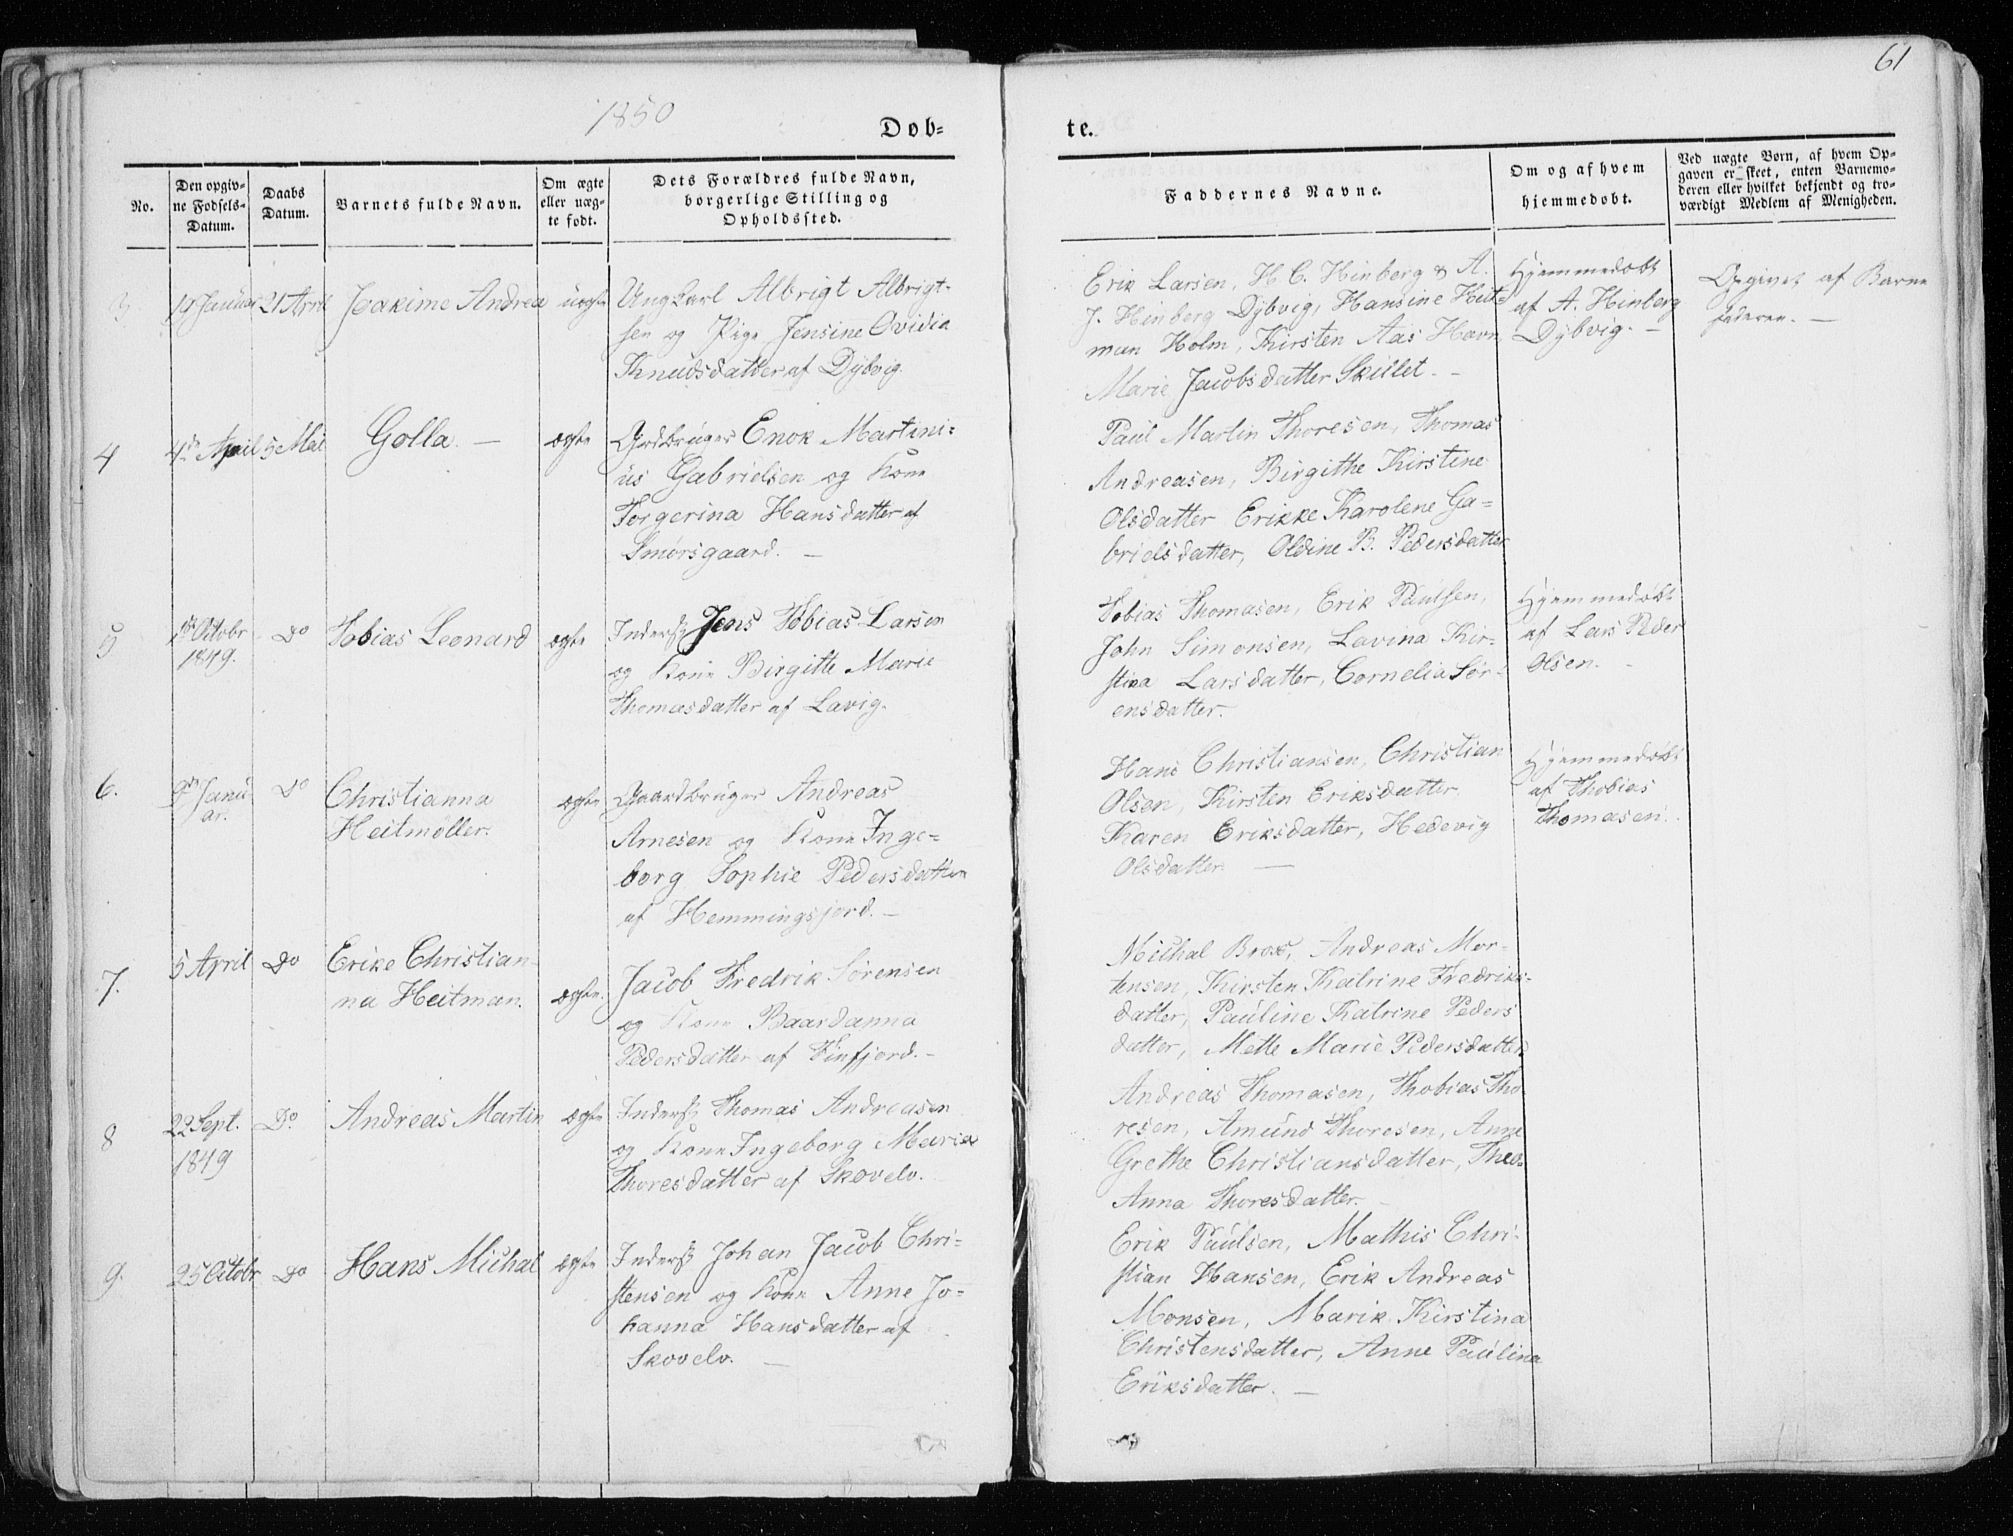 61
1850
Døb-
te.
No.
Den opgiv-
ne Fødsels-
Datum.
Daabs
Datum.
Barnets fulde Navn.
Om ægte
eller uæg-
te født.
Dets Forældres fulde Navn,
borgerlige Stilling og
Opholdssted.
Faddernes Navne.
Om og af hvem
hjemmedøbt.
Ved uægte Børn, af hvem Op-
gaven er skeet, enten Barnemo-
deren eller hvilket bekjendt og tro-
værdigt Medlem af Menigheden.
3
19 Januar
21 April
Joakime Andrea
uægte
Ungkarl Albrigt Albrigt-
sen og Pige Jensine Ovidia
Knudsdatter af Dybvig.
Erik Larsen, H C. Hinberg & A.
J. Hinberg Dybvig, Hansine Heit-
man Holm, Kirsten Aas Havn
Marie Jacobsdatter Skillet. -
Hjemmedøbt
af A. Hinberg
Dybvig. -
Opgivet af Barne
faderen. -
4
4de April
5 Mai
Golla. -
ægte
Grdbruger Enok Martini-
us Gabrielsen og Kone
Torgerina Hansdatter af
Smørsgaard. -
Paul Martin Thoresen, Thomas
Andreasen, Birgithe Kirstine
Olsdatter Erikke Karolene Ga-
brielsdatter, Oldine B. Pedersdatter
5
1ste Octobr
1849.
Do
Tobias Leonard
ægte
Inders. Jens Tobias Larsen
og Kone Birgitte Marie
Thomasdatter af Lavig.
Tobias Thomasen, Erik Paulsen,
John Simonsen, Lavina Kir-
stina Larsdatter, Cornelia Sør-
ensdatter.
Hjemmedøbt
af Lars Peder
Olsen. -
6.
9de Janu
ar.
Do
Christianna
Heitmøller.
ægte
Gaardbruger Andreas
Arnesen og Kone Inge-
borg Sophie Pedersdatter
af Hemmingsjord. -
Hans Christiansen, Christian
Olsen, Kirsten Eriksdatter
Karen Eriksdatter, Hedevig
Olsdatter. -
Hjemmedøbt
af Thobias
Thomasen.
7.
5 April
Do
Erike Christian-
na Heitman.
ægte.
Jacob Fredrik Sørensen
og Kone Baardanna
Pedersdatter af Finfjord. -
Michal Brox, Andreas Mor-
tensen, Kirsten Katrine Fredriks-
datter, Pauline Katrine Peders
datter, Mette Marie Pedersdatter
8
22 Sept.
1849
Do.
Andreas Martin
ægte
Inders. Thomas Andreasen
og Kone Ingeborg Maria
Thoresdatter af Skovelv.
Andreas Thomasen, Thobias Tho
resen, Amund Thoresen, Anne
Grethe Christiansdatter, Theo-
Anna Thoresdatter. -
9.
25 Octobr
Do
Hans Michal
ægte
Inders. Johan Jacob Chri-
stensen og Kone Anne Jo-
hanna Hansdatter af
Skovelv. -
Erik Paulsen, Mathis Chri-
stian Hansen, Erik Andreas
Monsen, Marik Kirstina
Christensdatter, Anne Paulina
Eriksdatter. -